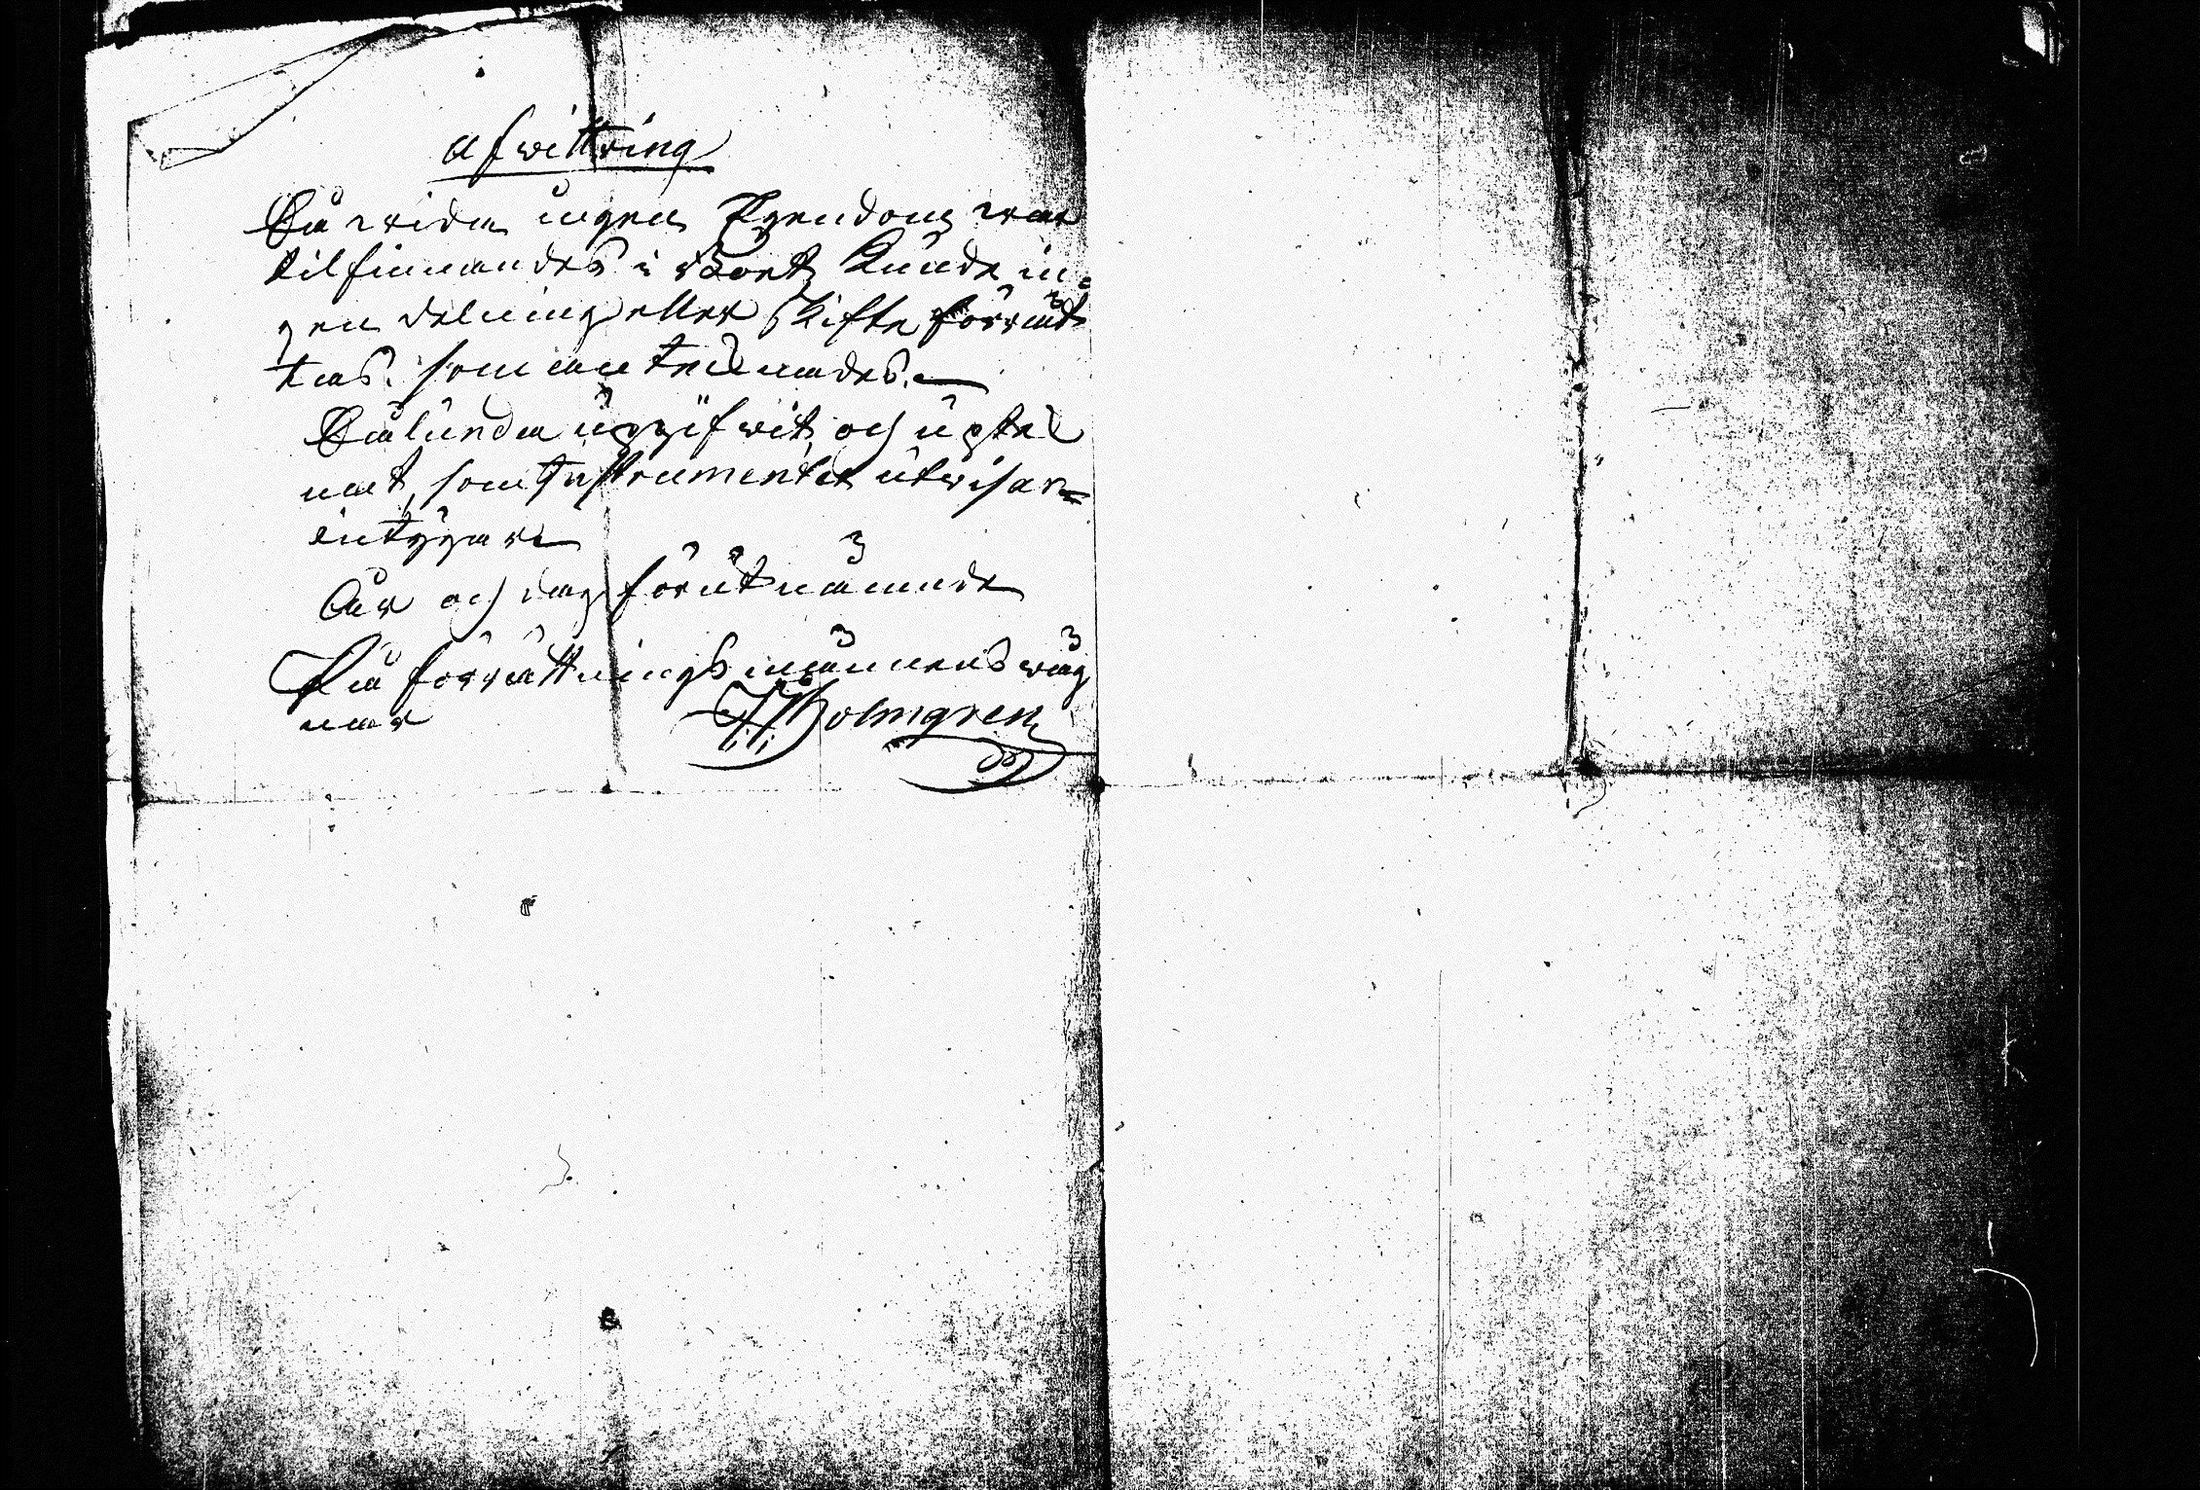 Afwittring
Så wida ingen Egendom war
tilfinnandes i boet, kunde in-
gen delning eller skifte förrät
tas. som antecknades.
Sålunda uppgifwit och uptek
nat, som Instrumentet utwisar
intygar
År och dag förutnämnde
På förrättningsmännens wäg
nar Holmgren